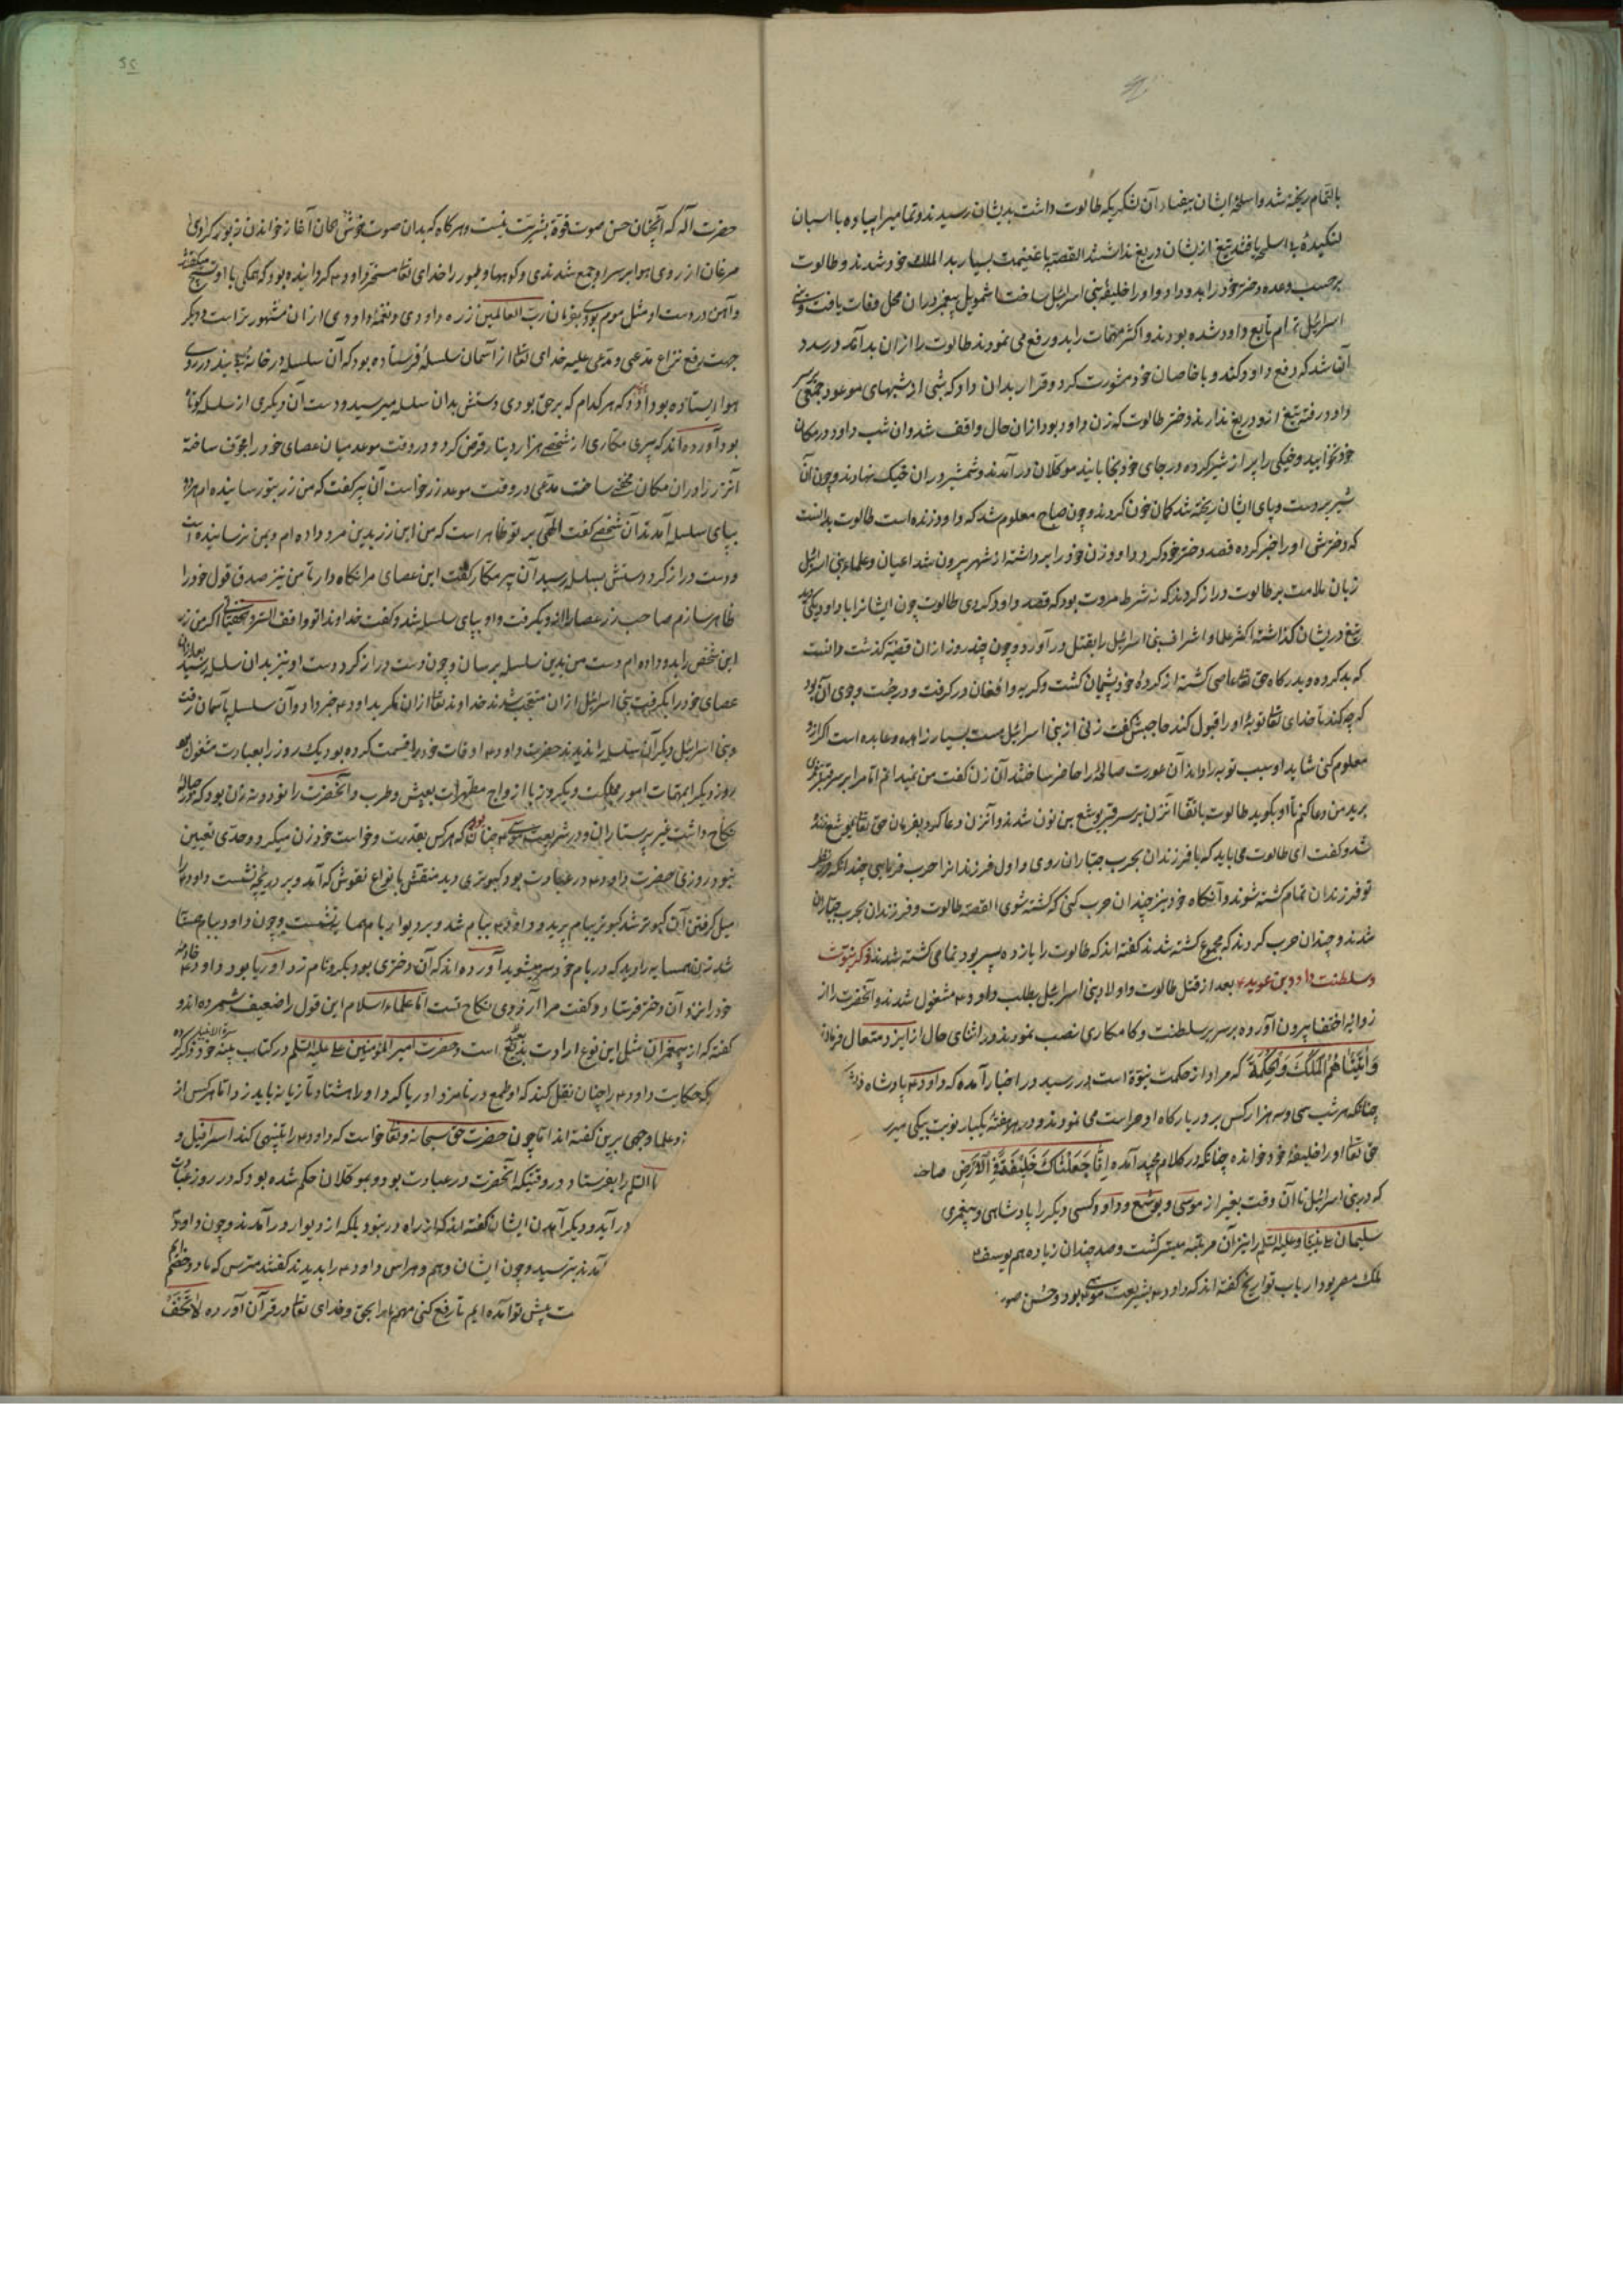 بالتمام ریخته شد و اسلحهٔ ایشان بیفتاد آن لشکری که طالوت داشت بدیشان رسیدند و تمامی را پیاده با اسبان
تیغ ازیشان دریغ نداشتند القصه با غنیمت بسیار بدار الملک خود شدند و طالوت
برحسب وعده دختر خود را بدو داد و او را خلیفهٔ بنی اسرائیل ساخت تا شمویل پیغمبر دران محل وفات یافت و بنی
اسرائیل تمام تابع داود شده بودند و اکثر مهمات را بدو رفع می نمودند طالوت را ازان بد آمد و رسد و
آن شد که دفع داود کند و با خاصان خود مشورت کرد و قرار بدان داد که شبی از شبهای موعود جمعی بر سر
داود رفته تیغ ازو دریغ ندارند و دختر طالوت که زن داود بود ازان حال واقف شد و ان شب داود در مکان
خود نخوابید و خیکی را پر از شیر کرده در جای خود بخوابانید موکلان در آمدند و شمشیر دران خیک نهادند و چون آن
شیر بر دست و پای ایشان ریخته شد گمان خون کردند و چون صباح معلوم شد که داود زنده است طالوت بدانست
که دخترش او را خبر کرده قصد دختر خود کرد داود زن خود را برداشته از شهر بیرون شد اعیان و علماء بنی اسرائیل
زبان ملامت بر طالوت دراز کردند که نه شرط مروت بود که قصد داود کردی طالوت چون ایشانرا با داود یکی دید
تیغ دریشان گذاشته اکثر علما و اشراف بنی اسرائیل را بقتل در آورد و چون چند روز ازان قضیه گذشت دانست
که بد کرده و بدرگاه حق تعا عاصی گشته از کردهٔ خود پشیمان گشت و گریه و افغان در گرفت و در جست وجوی آن بود
که چه کند تا خدای تعا توبهٔ او را قبول کند حاجبش گفت زنی از بنی اسرائیل هست بسیار زاهده و عابده است اگر ازو
معلوم کنی شاید او سبب توبه را داند آن عورت صالحه را حاضر ساختند آن زن گفت من نمیدانم اما مرا بر سر قبر پیغمبری
برید من دعا کنم تا او بگوید طالوت باتفاق آنزن بر سر قبر یوشع بن نون شدند و آنزن دعا کرد بفرمان حق تعا یوشع زنده
شد و گفت ای طالوت می باید که با فرزندان بحرب جباران روی و اول فرزندانرا حرب فرمایی چندانکه در نظر
تو فرزندان تمام کشته شوند و آنگاه خود نیز چندان حرب کنی که کشته شوی القصه طالوت و فرزندان بحرب جباران
شدند و چندان حرب کردند که مجموع کشته شدند گفته اند که طالوت را یازده پسر بود تمامی کشته شدند ذکر نبوت
و سلطنت داود بن عوید ع بعد از قتل طالوت و اولاد بنی اسرائیل بطلب داود ع مشغول شدند و آنحضرت را از
زوایهٔ اختفا بیرون آورده بر سریر سلطنت و کامکاری نصب نمودند و در اثنای حال از ایزد متعال فرمان
وَآتَیْنَاهُمُ الْمُلْکَ وَالْحِکْمَةَ که مراد از حکمت نبوة است در رسید در اخبار آمده که داود ع پادشاه
چنانکه هر شب سی و سه هزار کس بر در بارگاه او حراست می نمودند و در هر هفته یکبار نوبت بیکی
حق تعا او را خلیفهٔ خود خوانده چنانکه در کلام مجید آمده اِنَّا جَعَلْنَاکَ خَلِیفَةً فِی الْاَرْضِ صاحب
که در بنی اسرائیل تا آن وقت بغیر از موسی و یوشع و داود کسی دیگر را پادشاهی و پیغمبری
سلیمان علی نبینا و علیه السلم را نیز آن مرتبه میسر گشت و صد چندان زیاده هم یوسف ع
ملک مصر بود ارباب تواریخ گفته اند که داود ع بشریعت موسی ع بود و حسن
حضرت آله که آنچنان حسن صوت قوة بشریت نیست و هرگاه که بدان صوت خوش الحان آغاز خواندن زبور کردی
مرغان از روی هوا بر سر او جمع شدندی و کوهها و طیور را خدای تعا مسخر داود ع گردانیده بود که همگی با او تسبیح میگفتند
و آهن در دست او مثل موم بودی بفرمان رب العالمین زره داودی و نغمهٔ داودی ازان مشهورتر است دیگر
جهت رفع نزاع مدعی و مدعی علیه خدای تعا از آسمان سلسلهٔ فرستاده بود که آن سلسله در خانه
هوا ایستاده بود که هرکدام که برحق بودی دستش بدان سلسله میرسید و دست آن دیگری از سلسله کوتاه
بود آورده اند که پیری مکاری از شخصی هزار دینار قرض کرد و در وقت موعد میان عصای خود را مجوف ساخته
آن زر را دران مکان مخفی ساخت مدعی در وقت موعد زر خواست آن پیر گفت که من زر بتو رسانیده ام هر دو
بپای سلسله آمدند آن شخص گفت الهی بر تو ظاهر است که من این زر بدین مرد داده ام و بمن نرسانیده است
و دست دراز کرد دستش بسلسله رسید آن پیر مکار گفت این عصای مرا نگاه دار تا من نیز صدق قول خود را
ظاهر سازم صاحب زر عصا را ازو بگرفت و او بپای سلسله شد و گفت خداوندا تو واقف السر و الخفیاتی اگر من زر
این شخص را بدو داده ام دست من بدین سلسله برسان و چون دست دراز کرد دست او نیز بدان سلسله رسید بعد ازان
عصای خود را بگرفت بنی اسرائیل ازان متعجب شدند خداوند تعا ازان مکر بداود ع خبر داد و آن سلسله بآسمان رفت
و بنی اسرائیل دیگر آن سلسله را ندیدند حضرت داود ع اوقات خود را قسمت کرده بود یک روز را بعبادت مشغول بود
روز دیگر بمهمات امور مملکت و دیگر روز با ازواج مطهرات بعیش و طرب و آنحضرت را نود و نه زن بود که در حبالهٔ
نکاح داشت غیر پرستاران و در شریعت موسی ع چنان بود که هر کس بقدرت و خواست خود زن میکرد و حدی تعیین
نبود روزی حضرت داود ع در عبادت بود کبوتری دید منقش بانواع نقوش که آمد و بر دریچه نشست داود ع را
میل گرفتن آن کبوتر شد کبوتر ببام پرید و داود ع ببام شد و بر دیوار بام همسایه نشست و چون داود ببام
شد زن همسایه را دید که در بام خود سر میشوید آورده اند که آن دختری بود بکر و نامزد اوریا بود داود ع خادمهٔ
خود را نزد آن دختر فرستاد و گفت مرا آرزوی نکاح تست اما علماء اسلام این قول را ضعیف شمرده اند و
گفته که از پیغمبران مثل این نوع ارادت بعید است و حضرت امیر المؤمنین علی علیه السلم در کتاب
که حکایت داود ع را چنان نقل کند که او طمع در نامزد اوریا کرد او را هشتاد تازیانه باید زد اما هرکس از
و علما وجهی برین گفته اند اما چون حضرت حق سبحانه و تعا خواست که داود ع را تنبیهی کند اسرافیل و
السلم را بفرستاد در وقتیکه آنحضرت در عبادت بود و موکلان حکم شده بود که در روز عبادت
در آید و دیگر آمدن ایشان گفته اند که از راه در نبود بلکه از دیوار در آمدند و چون داود
آمدند بترسید و چون ایشان وهم و هراس داود ع را بدیدند گفتند مترس که ما دو خصم ایم
پیش تو آمده ایم تا رفع کنی مهم ما را بحق و خدای تعا در قرآن آورده لَاتَخَفْ